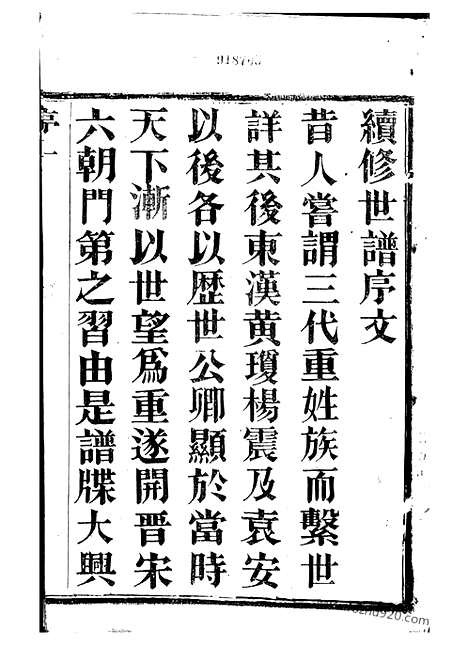 續修世譜序文
昔人嘗謂三代重姓族而繫世
詳其後東漢黃瓊楊震及袁安
以後各以歷世公卿顯於當時
天下漸以世望爲重遂開晋宋
六朝門第之習由是譜牒大興
序一